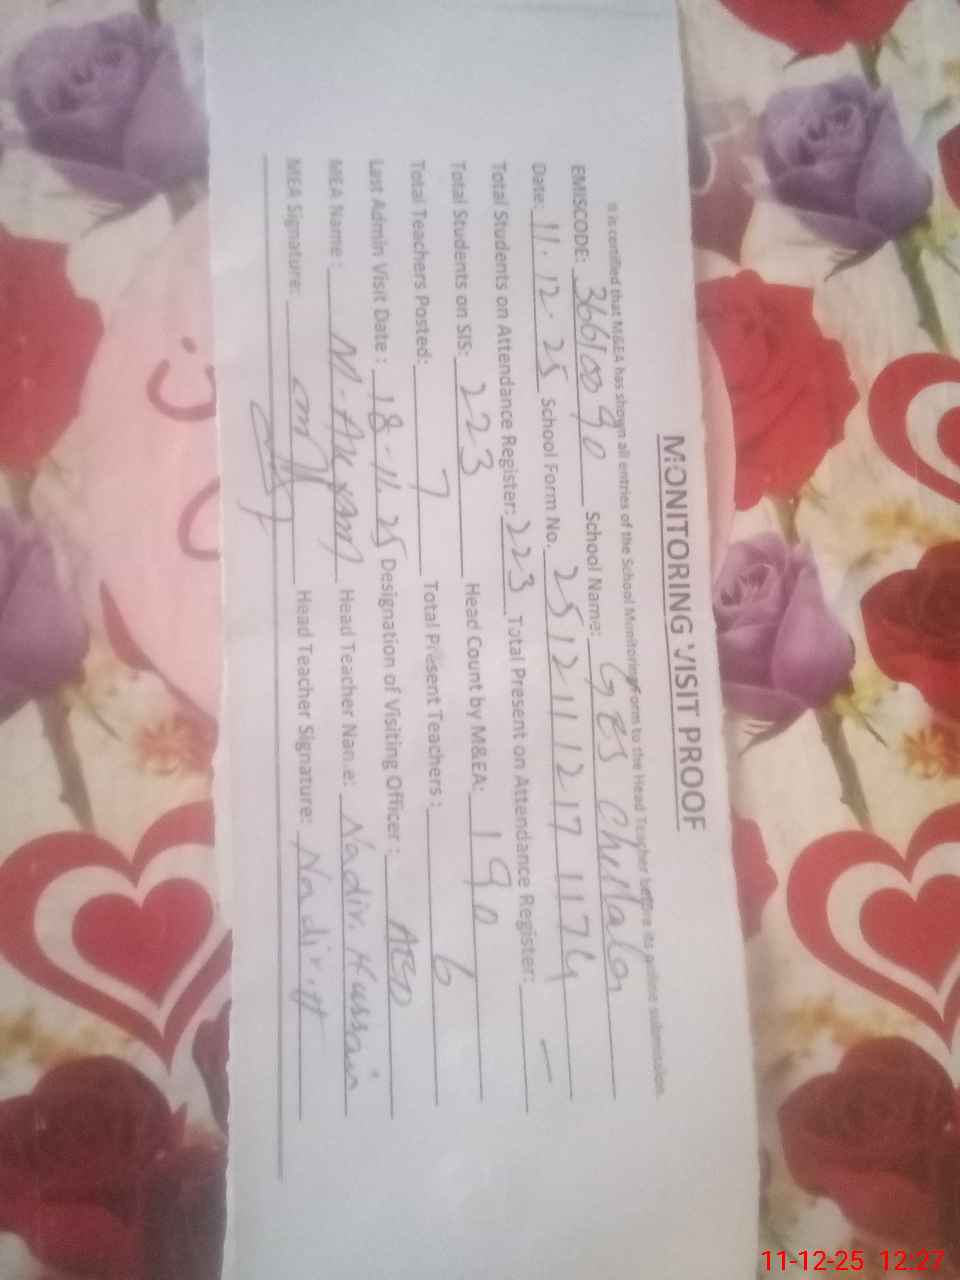 MONITORING VISIT PROOF
is it certified that M&EA has shown all entries of the School Monitoring Form to the Head Teacher before its online submission.
EMISCODE: 36610090 School Name: GES
Date: 11.12.25 School Form No. 25121112171174
Total Students on Attendance Register: 223 Total Present on Attendance Register: —
Total Students on SIS: 223 Head Count by M&EA: 190
Total Teachers Posted: 7 Total Present Teachers: 6
Last Admin Visit Date: 18-11.25 Designation of Visiting Officer: AEO
MEA Name: M. Head Teacher Name: Nadir Hussain
MEA Signature: Head Teacher Signature: Nadir H
11-12-25 12:27